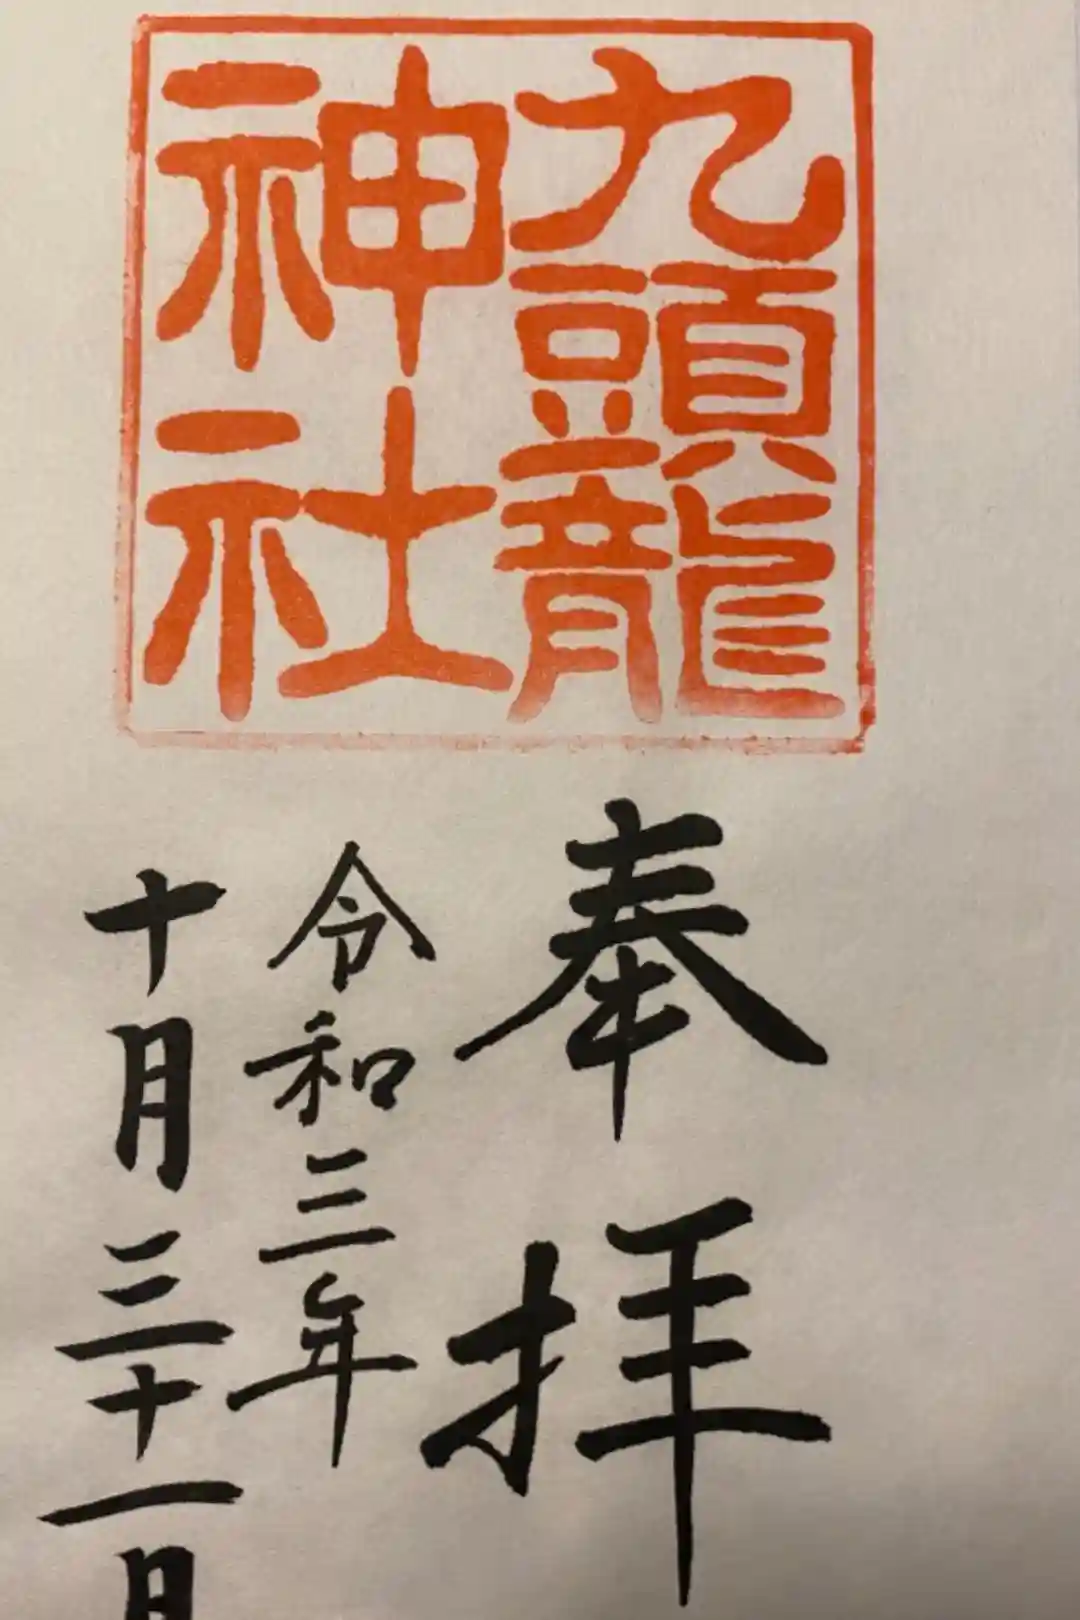 九頭龍
神社
奉拝
令和三年
十月三十一日